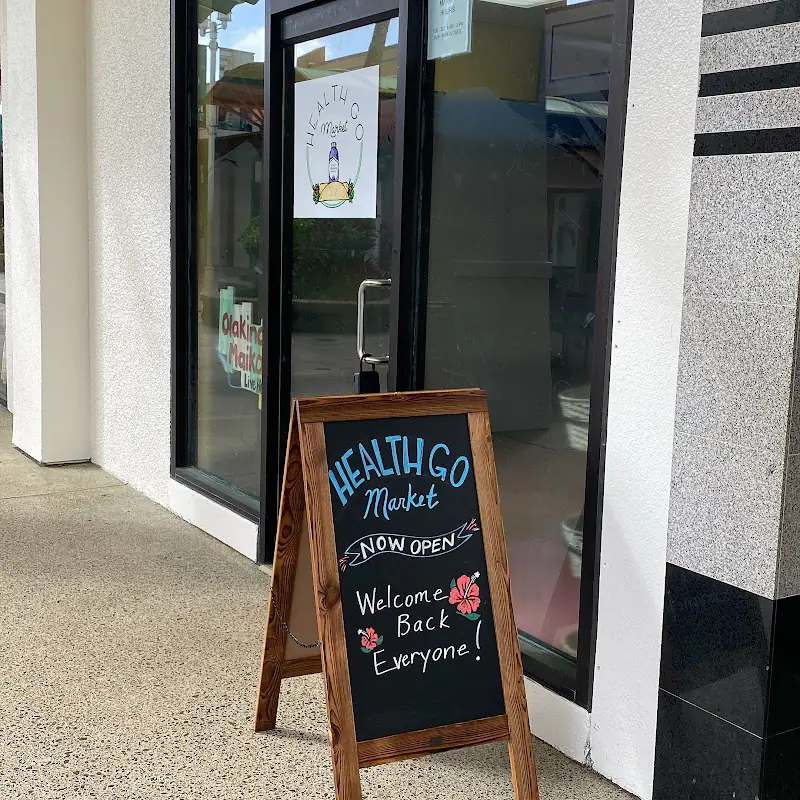 HEALTH GO
Market
HOURS
Olakino
Maika
Live
HEALTH GO
Market
NOW OPEN
Welcome
Back
Everyone!